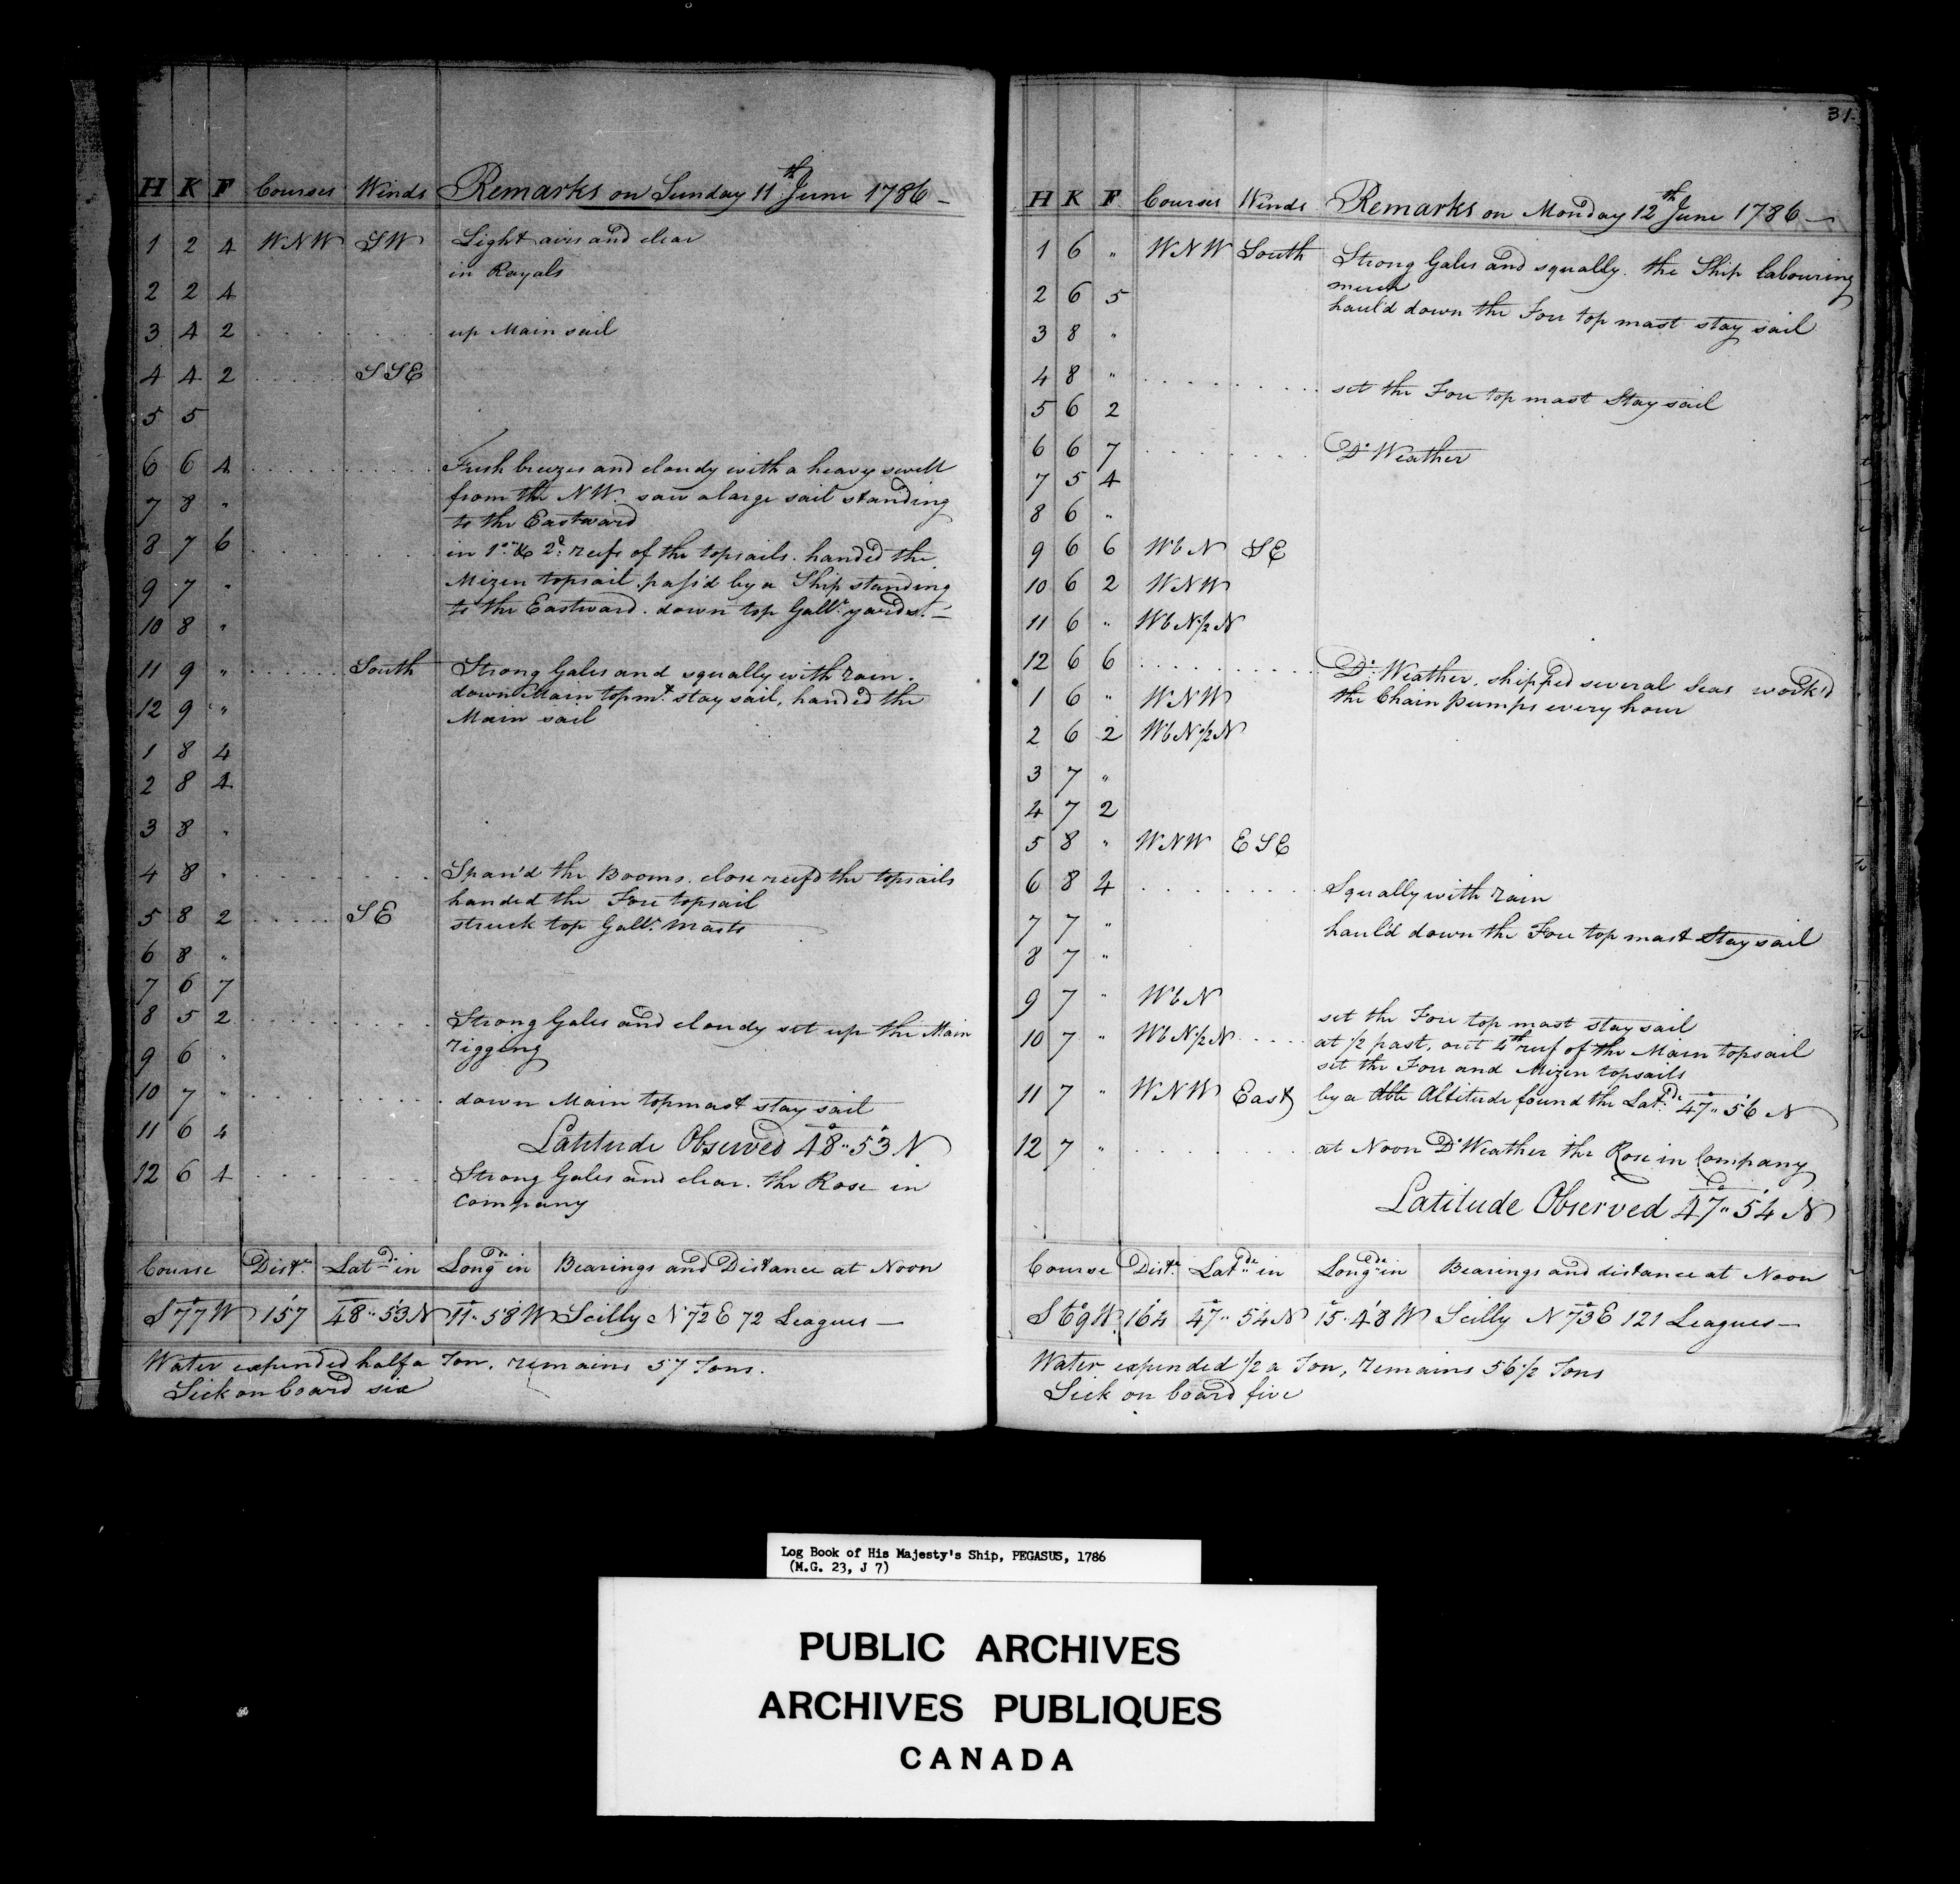 H K F Courses Winds Remarks on Sunday 11th June 1786 -
1 2 4 WNW SW Light airs and clear
in Royals
2 2 4
3 4 2 up Main sail
4 4 2 SSE
5 5
6 6 4 Fresh breezes and cloudy with a heavy swell
7 8 " from the NW. saw a large sail standing
to the Eastward
8 7 6 in 1st & 2d reefs of the topsails. handed the
9 7 " Mizen topsail. pass'd by a Ship standing
to the Eastward. down top Gallt yards. -
10 8 "
11 9 " South Strong Gales and squally with rain.
down Main topmt stay sail, handed the
12 9 " Main sail
1 8 4
2 8 4
3 8 "
4 8 " Span'd the Booms. close reef'd the topsails
handed the Fore topsail
5 8 2 SE struck top Gallt Masts
6 8 "
7 6 7
8 5 2 Strong Gales and cloudy set up the Main
rigging
9 6 "
10 7 " down Main topmast stay sail
11 6 4 Latitude Observed 48°" 53' N
12 6 4 Strong Gales and clear. the Rose in
Company
Course Distce Latde in Longde in Bearings and Distance at Noon
S 77° W 157 48°" 53' N 11°" 58' W Scilly N 72° E 72 Leagues -
Water expended half a Ton, remains 57 Tons.
Sick on board six
31
H K F Courses Winds Remarks on Monday 12th June 1786 -
1 6 " WNW South Strong Gales and squally. the Ship labouring
much
2 6 5 haul'd down the Fore top mast stay sail
3 8 "
4 8 " set the Fore top mast Stay sail
5 6 2
6 6 7 Do Weather
7 5 4
8 6 "
9 6 6 WbN SE
10 6 2 WNW
11 6 " WbN1/2N
12 6 6 Do Weather, shipped several Seas work'd
1 6 " WNW the Chain pumps every hour
2 6 2 WbN1/2N
3 7 "
4 7 2
5 8 " WNW ESE
6 8 4 Squally with rain
7 7 " haul'd down the Fore top mast Stay sail
8 7 "
9 7 " WbN set the Fore top mast stay sail
10 7 " WbN1/2N at 1/2 past, out 4th reef of the Main topsail
set the Fore and Mizen topsails
11 7 " WNW East by a dble Altitude found the Latde 47°" 56' N
12 7 " at Noon Do Weather the Rose in Company
Latitude Observed 47°" 54' N
Course Distce Latde in Longde in Bearings and distance at Noon
S 69° W 164 47°" 54' N 15°" 48' W Scilly N 73° E 121 Leagues -
Water expended 1/2 a Ton, remains 56 1/2 Tons
Sick on board five
Log Book of His Majesty's Ship, PEGASUS, 1786
(M.G. 23, J 7)
PUBLIC ARCHIVES
ARCHIVES PUBLIQUES
CANADA